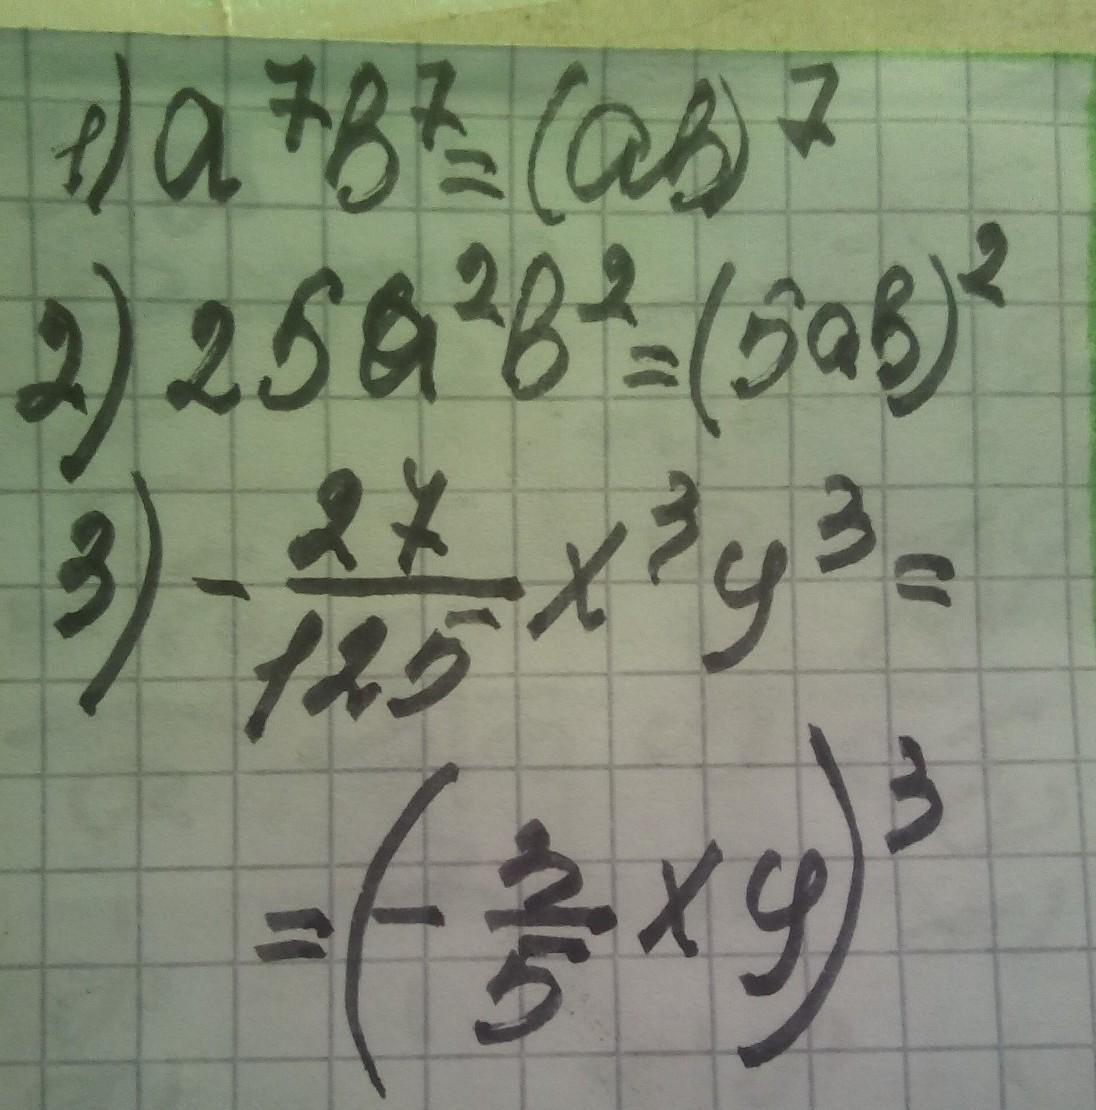 1) a⁷b⁷ = (ab)⁷
2) 25a²b² = (5ab)²
3) -27/125 x³y³ =
= (-3/5 xy)³